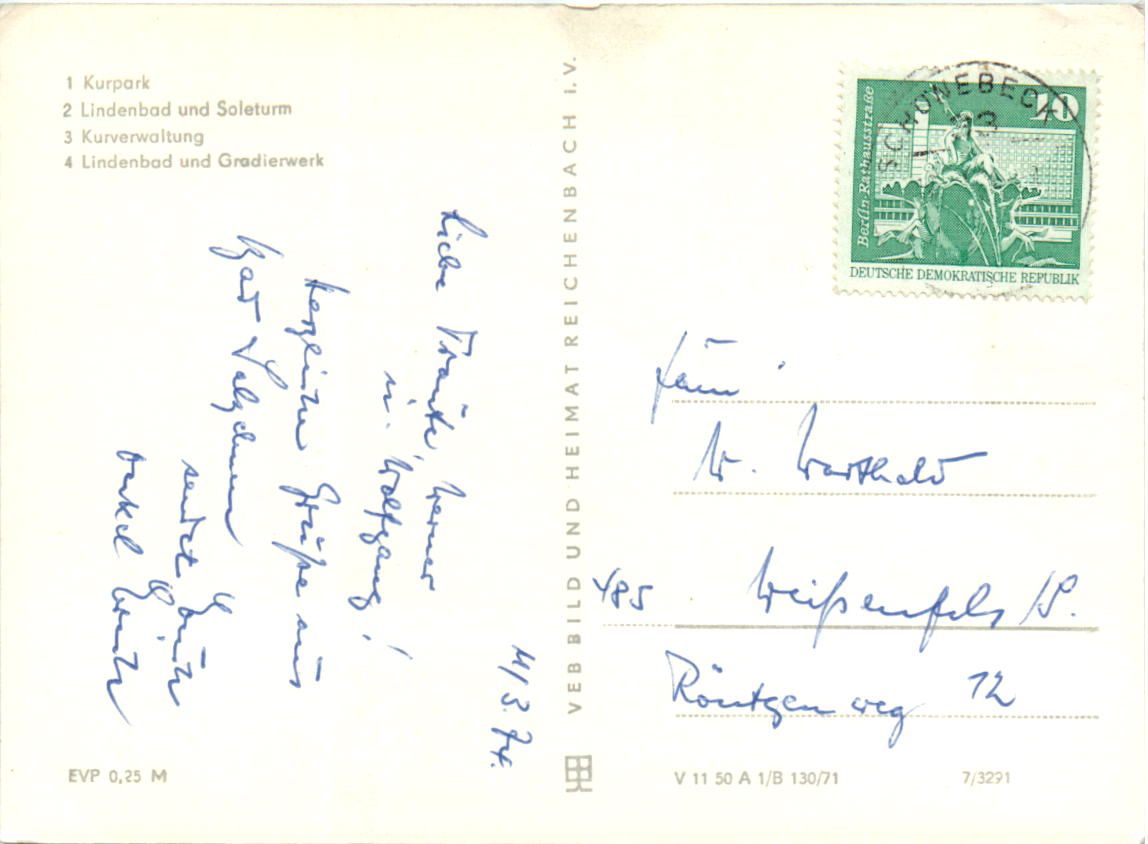 1 Kurpark
2 Lindenbad und Soleturm
3 Kurverwaltung
4 Lindenbad und Gradierwerk
11/3. 74.
Liebe Traute, Werner
u. Wolfgang!
Herzliche Grüße aus
Bad Salzelmen
sendet Euch
Onkel
EVP 0,25 M
VEB BILD UND HEIMAT REICHENBACH I.V.
SCHÖNEBECK
Berlin-Rathausstraße
10
DEUTSCHE DEMOKRATISCHE REPUBLIK
Fam.
W. Barthold
485 Weißenfels /S.
Röntgenweg 12
V 11 50 A 1/B 130/71
7/3291